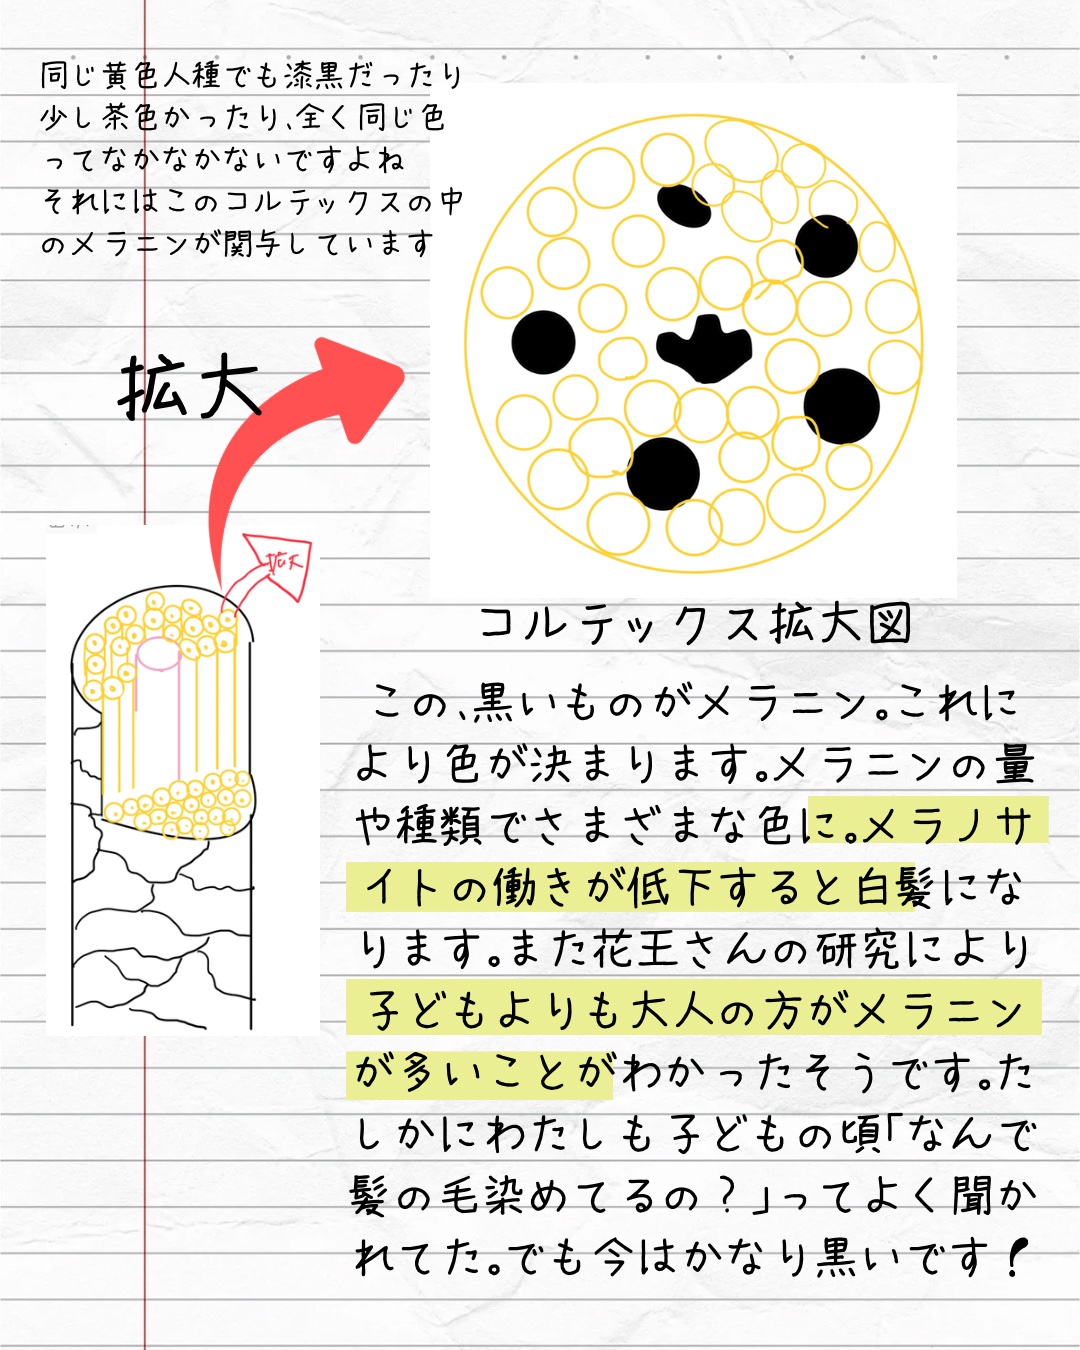 同じ黄色人種でも漆黒だったり
少し茶色かったり、全く同じ色
ってなかなかないですよね
それにはこのコルテックスの中
のメラニンが関与しています
拡大
拡大
コルテックス拡大図
この、黒いものがメラニン。これに
より色が決まります。メラニンの量
や種類でさまざまな色に。メラノサ
イトの働きが低下すると白髪にな
ります。また花王さんの研究により
子どもよりも大人の方がメラニン
が多いことがわかったそうです。た
しかにわたしも子どもの頃「なんで
髪の毛染めてるの？」ってよく聞か
れてた。でも今はかなり黒いです！